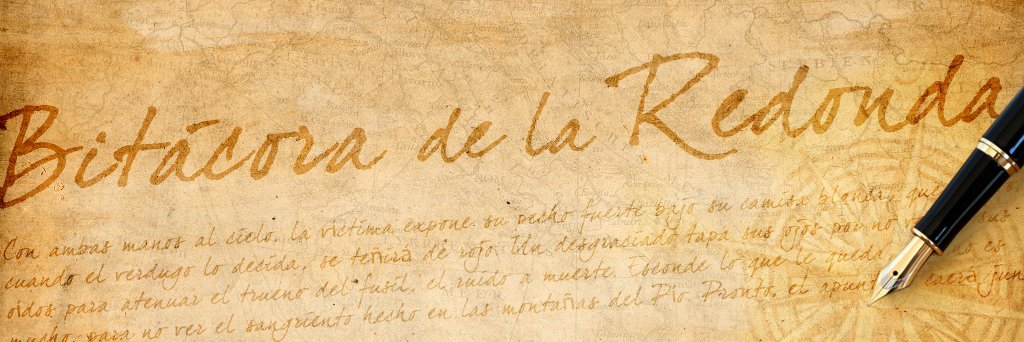 Bitácora de la Redonda
SERBIEN
Con ambas manos al cielo, la víctima expone su pecho fuerte bajo su camisa blanca, que
cuando el verdugo lo decida, se teñirá de rojo. Un desgraciado tapa sus ojos por no
oídos para atenuar el trueno del fusil, el ruido a muerte. Esconde lo que le queda es
mucho, para no ver el sangriento hecho en las montañas del Pío Pronto, el caerá